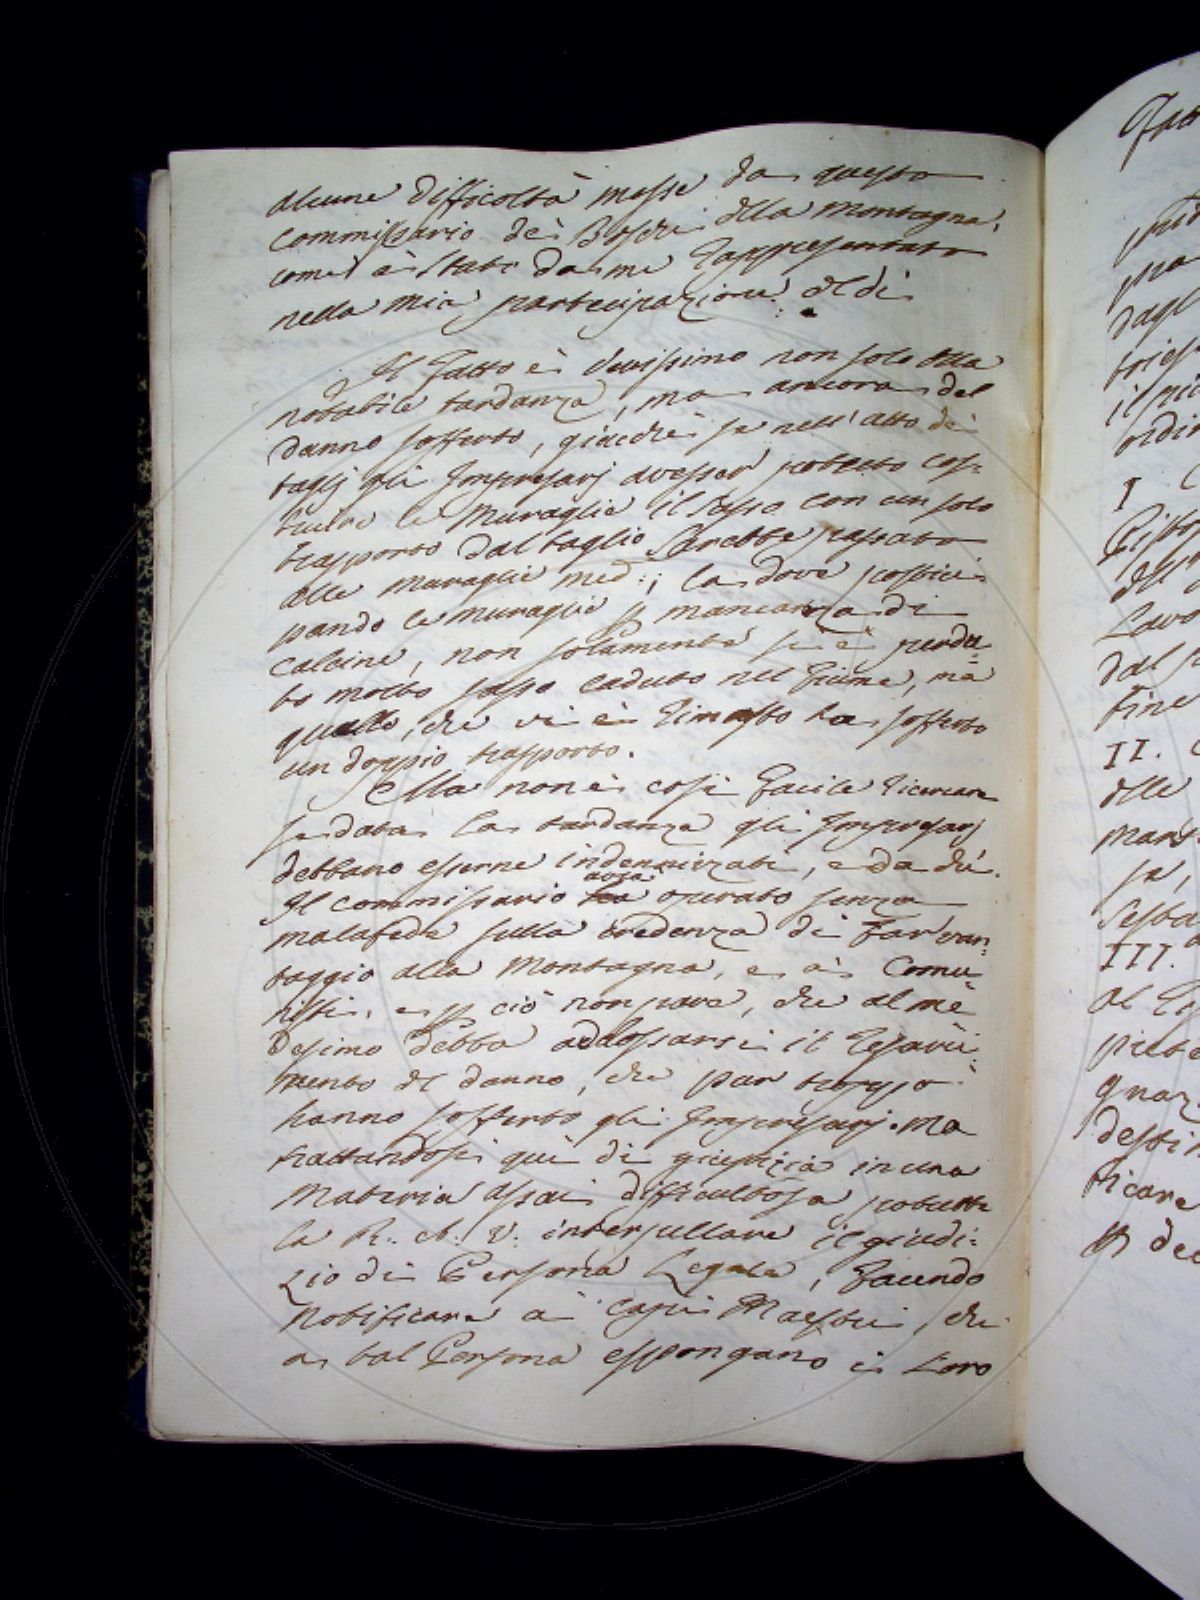 alcune difficoltà mosse da questo
Commissario de' Boschi della Montagna,
come è stato da me rappresentato
nella mia partecipazione del dì
Il Fatto è verissimo non solo della
notabile tardanza, ma ancora del
danno sofferto, giacchè se nell'atto de'
taglj gli Impresarj avesser potuto cos=
truire le Muraglie il sasso con un solo
trasporto dal taglio sarebbe passato
alle muraglie med:; la dove postici=
pando le muraglie p mancanza di
calcine, non solamente si è perdu=
to molto sasso caduto nel Fiume, ma
quello, che vi è rimasto ha sofferto
un doppio trasporto.
Ella non è così facile ricercare
se data la tardanza gli Impresarj
debbano esserne indennizzati, e da chi.
Il Commissario avrà operato senza
malafede sulla credenza di Far van=
taggio alla Montagna, e a' Comu=
nisti, e p ciò non pare, che al me=
desimo debba addossarsi il resarci=
mento del danno, che pur troppo
hanno sofferto gli Impresarj. Ma
trattandosi quì di giustizia in una
Materia assai difficultosa potrette
la R. A. V. interpellare il giudi=
zio di Persona Legale, Facendo
Notificare a' Capi Maestri, che
a tal Persona espongano i Loro
I
dal
Fine
II.
delle
III.
ticare